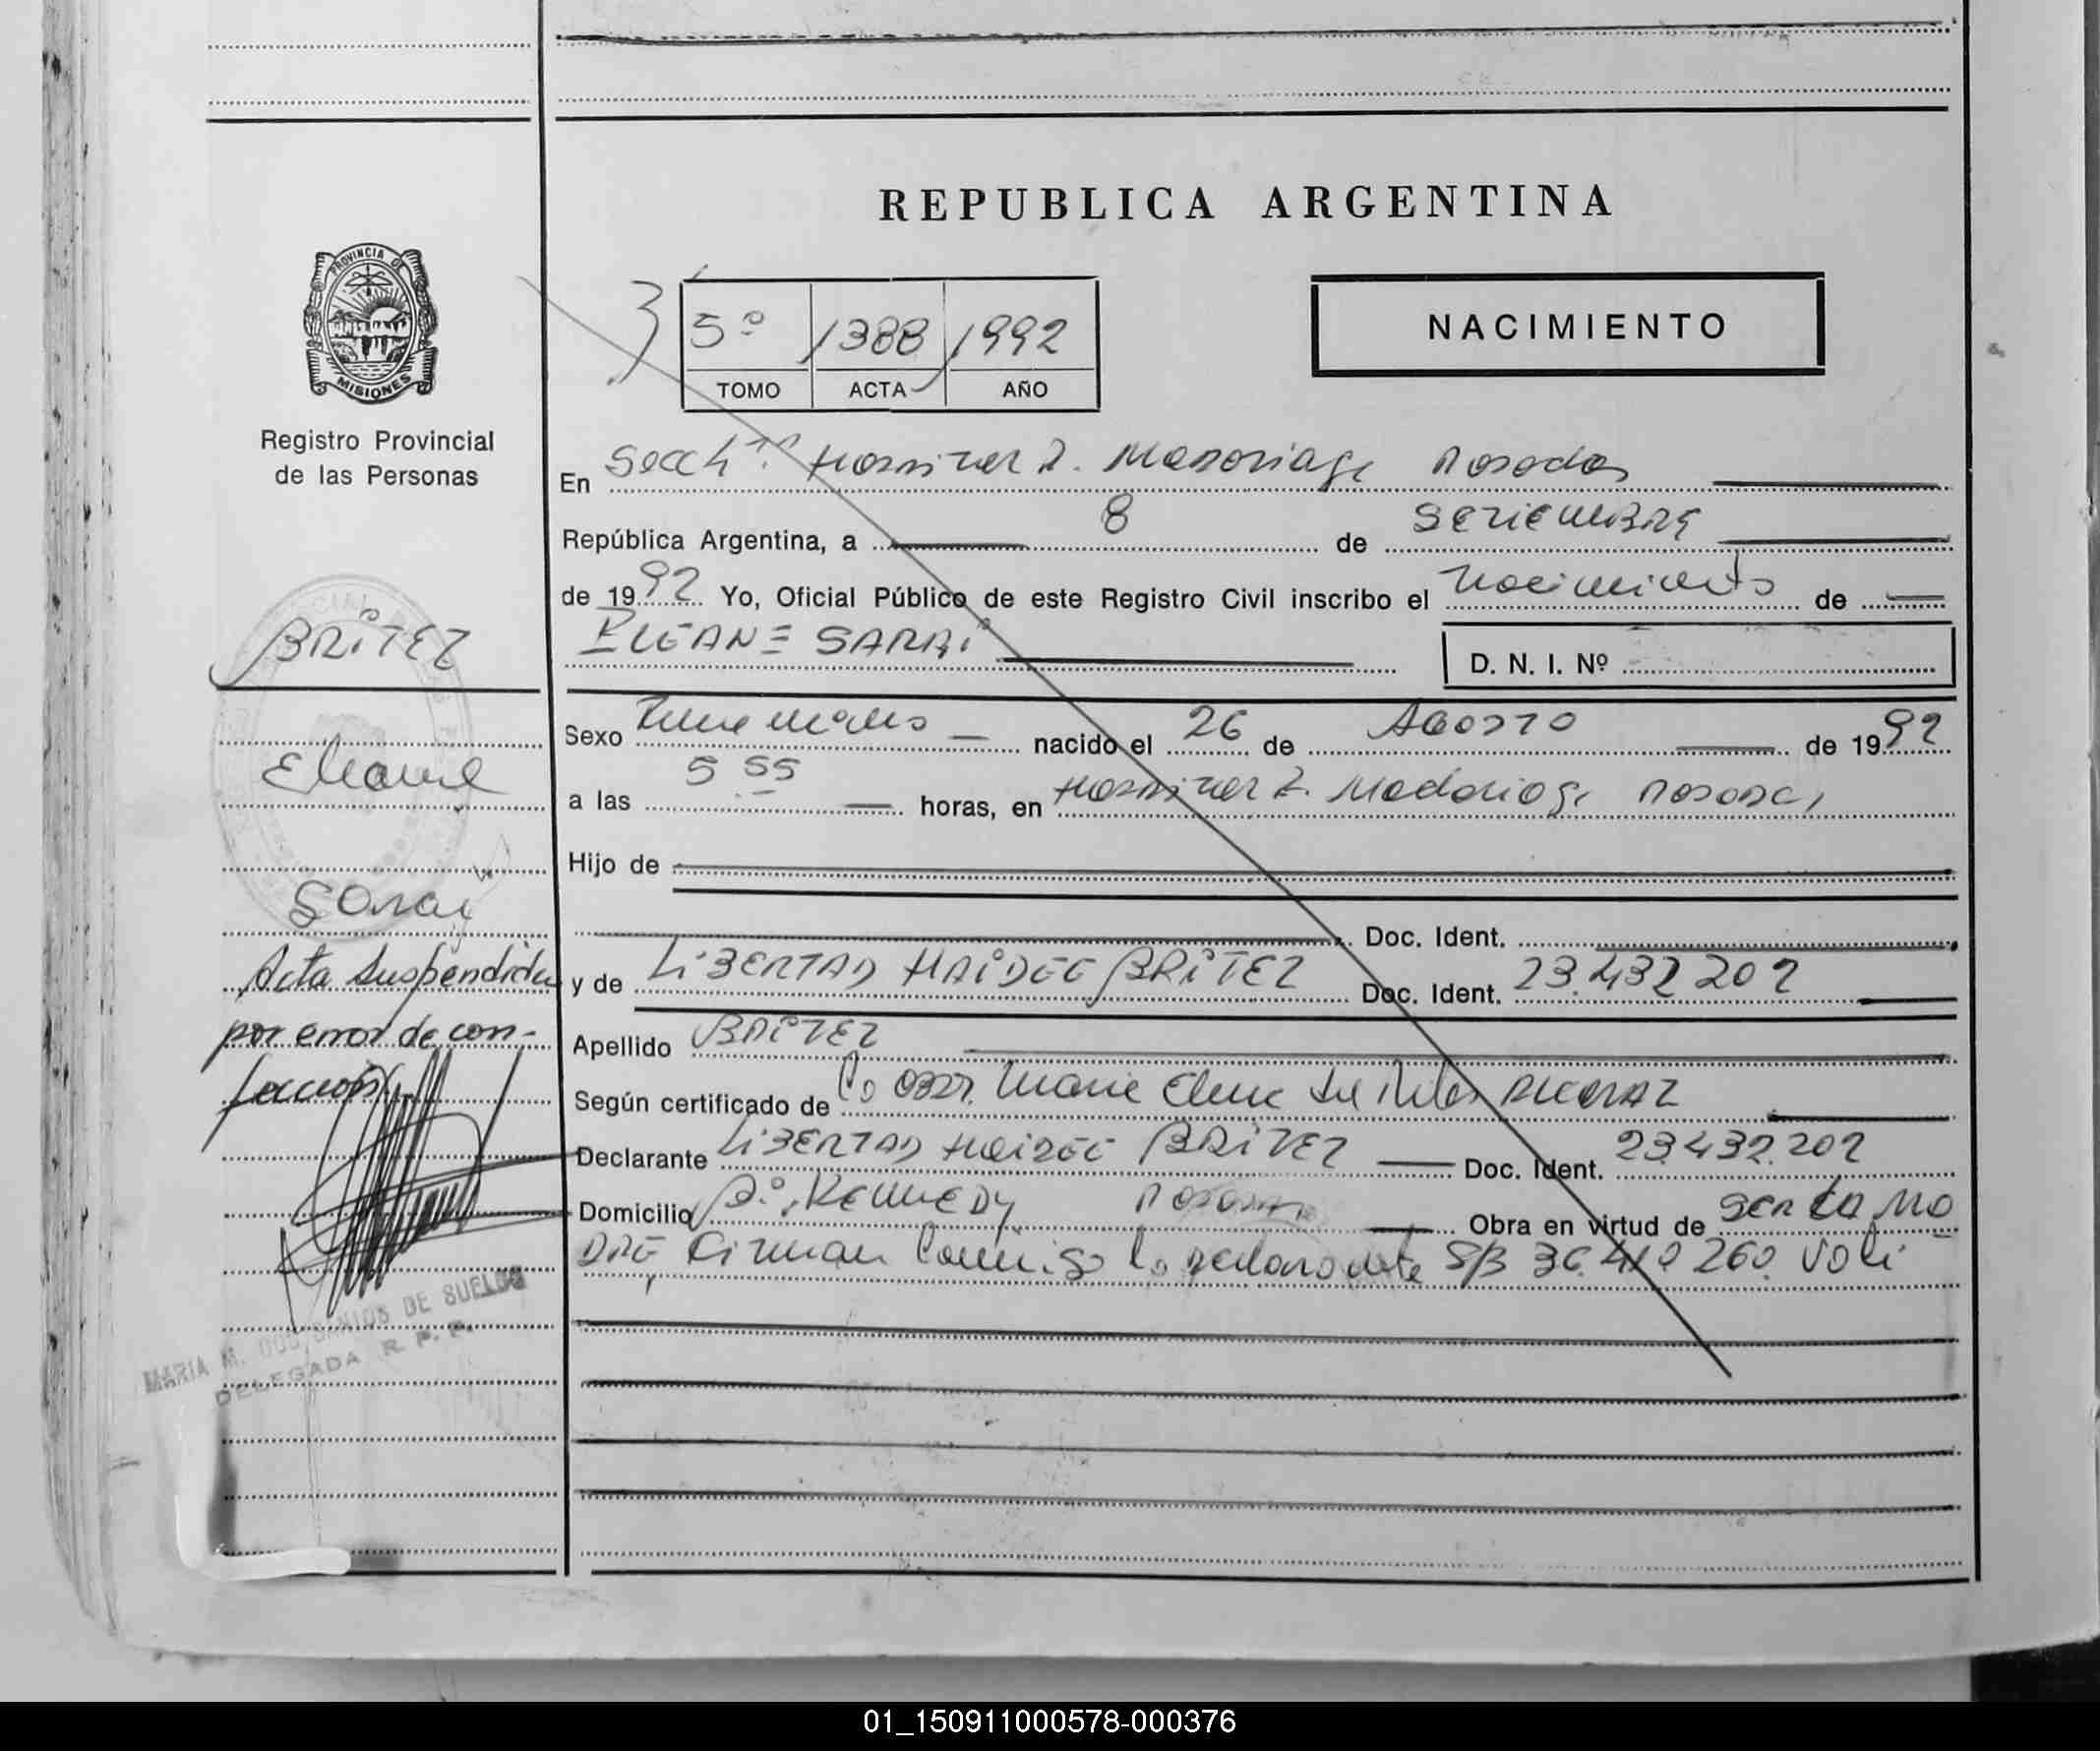 REPUBLICA ARGENTINA
PROVINCIA DE
MISIONES
5º 1388 1992
TOMO ACTA AÑO
NACIMIENTO
Registro Provincial
de las Personas
En Secc 4ta Hospital R. Madariaga Posadas
República Argentina, a 8 de SETIEMBRE
de 1992 Yo, Oficial Público de este Registro Civil inscribo el Nacimiento de
ELEANE SARAI
D. N. I. Nº
BRITEZ
Sexo Femenino nacido el 26 de AGOSTO de 1992
Eliane
a las 5 55 horas, en Hospital R. Madariaga Posadas
Hijo de
Sarai
Doc. Ident.
Acta Suspendida
y de LIBERTAD HAIDEE BRITEZ Doc. Ident. 23.432 202
por error de con-
Apellido BRITEZ
fección
Según certificado de La Obst. Maria Elena ALCARAZ
Declarante LIBERTAD HAIDEE BRITEZ Doc. Ident. 23.432.202
Domicilio Bº. KENNEDY Posadas Obra en virtud de SER LA MA
DRE, Firman Conmigo la declarante S/B 36.410 260. Vale
MARIA M. DOS SANTOS DE SUELDO
DELEGADA R. P. P.
01_150911000578-000376